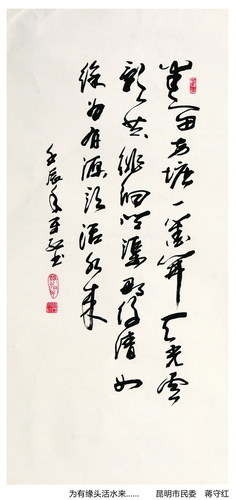 半亩方塘一鉴开天光云
影共徘徊问渠那得清如
许为有源头活水来
壬辰年
为有缘头活水来…… 昆明市民委 蒋守红